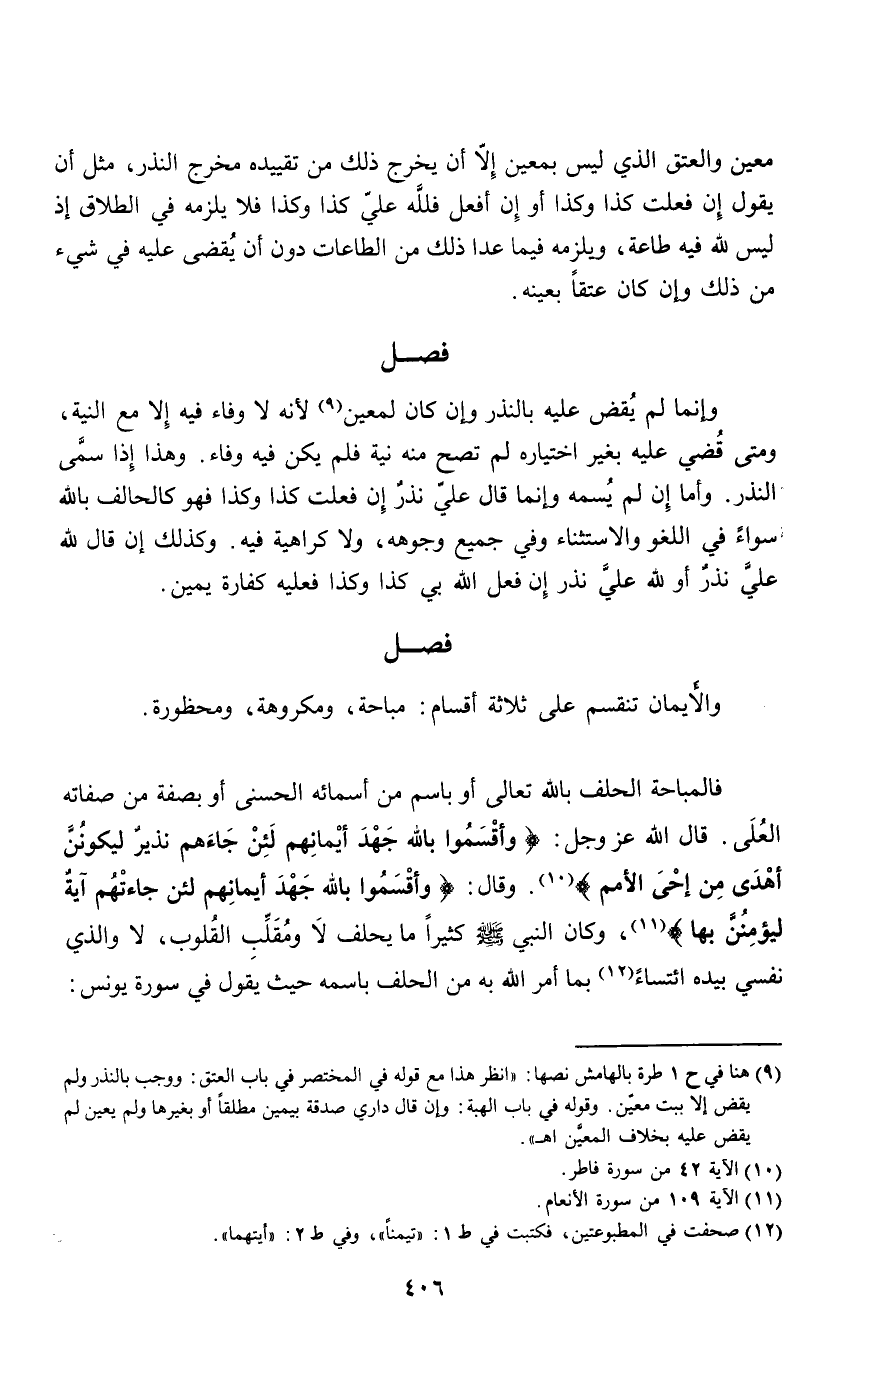 معين والعتق الذي ليس بمعين إلّا أن يخرج ذلك من تقييده مخرج النذر، مثل أن
يقول إن فعلت كذا وكذا أو إن أفعل فللَّه عليّ كذا وكذا فلا يلزمه في الطلاق إذ
ليس لله فيه طاعة، ويلزمه فيما عدا ذلك من الطاعات دون أن يُقضى عليه في شيء
من ذلك وإن كان عتقاً بعينه.
فصـــل
وإنما لم يُقض عليه بالنذر وإن كان لمعين(٩) لأنه لا وفاء فيه إلا مع النية،
ومتى قُضي عليه بغير اختياره لم تصح منه نية فلم يكن فيه وفاء. وهذا إذا سمَّى
النذر. وأما إن لم يُسمه وإنما قال عليّ نذرٌ إن فعلت كذا وكذا فهو كالحالف بالله
سواءً في اللغو والاستثناء وفي جميع وجوهه، ولا كراهية فيه. وكذلك إن قال لله
عليَّ نذرٌ أو لله عليَّ نذر إن فعل الله بي كذا وكذا فعليه كفارة يمين.
فصـــل
والأَيمان تنقسم على ثلاثة أقسام: مباحة، ومكروهة، ومحظورة.
فالمباحة الحلف بالله تعالى أو باسم من أسمائه الحسنى أو بصفة من صفاته
العُلَى. قال الله عز وجل: ﴿وأقْسَمُوا بالله جَهْدَ أيْمانِهم لَئِنْ جَاءَهم نذيرٌ ليكونُنَّ
أهْدَى مِن إحْىَ الأمم﴾(١٠). وقال: ﴿وأقْسَمُوا بالله جَهْدَ أيمانِهم لئن جاءتْهُم آيةٌ
ليؤمِنُنَّ بها﴾(١١)، وكان النبي ﷺ كثيراً ما يحلف لَا ومُقَلِّبِ القُلوب، لا والذي
نفسي بيده ائتساءً(١٢) بما أمر الله به من الحلف باسمه حيث يقول في سورة يونس:
(٩) هنا في ح ١ طرة بالهامش نصها: «انظر هذا مع قوله في المختصر في باب العتق: ووجب بالنذر ولم
يقض إلا ببت معيّن. وقوله في باب الهبة: وإن قال داري صدقة بيمين مطلقاً أو بغيرها ولم يعين لم
يقض عليه بخلاف المعيَّن اهـ».
(١٠) الآية ٤٢ من سورة فاطر.
(١١) الآية ١٠٩ من سورة الأنعام.
(١٢) صحفت في المطبوعتين، فكتبت في ط ١: «تيمناً»، وفي ط ٢: «أيتهما».
٤٠٦